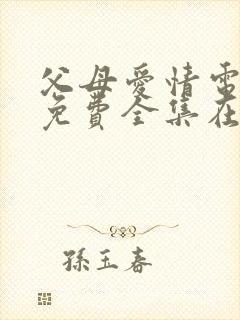 父母愛情電
免費全集在
孫玉春